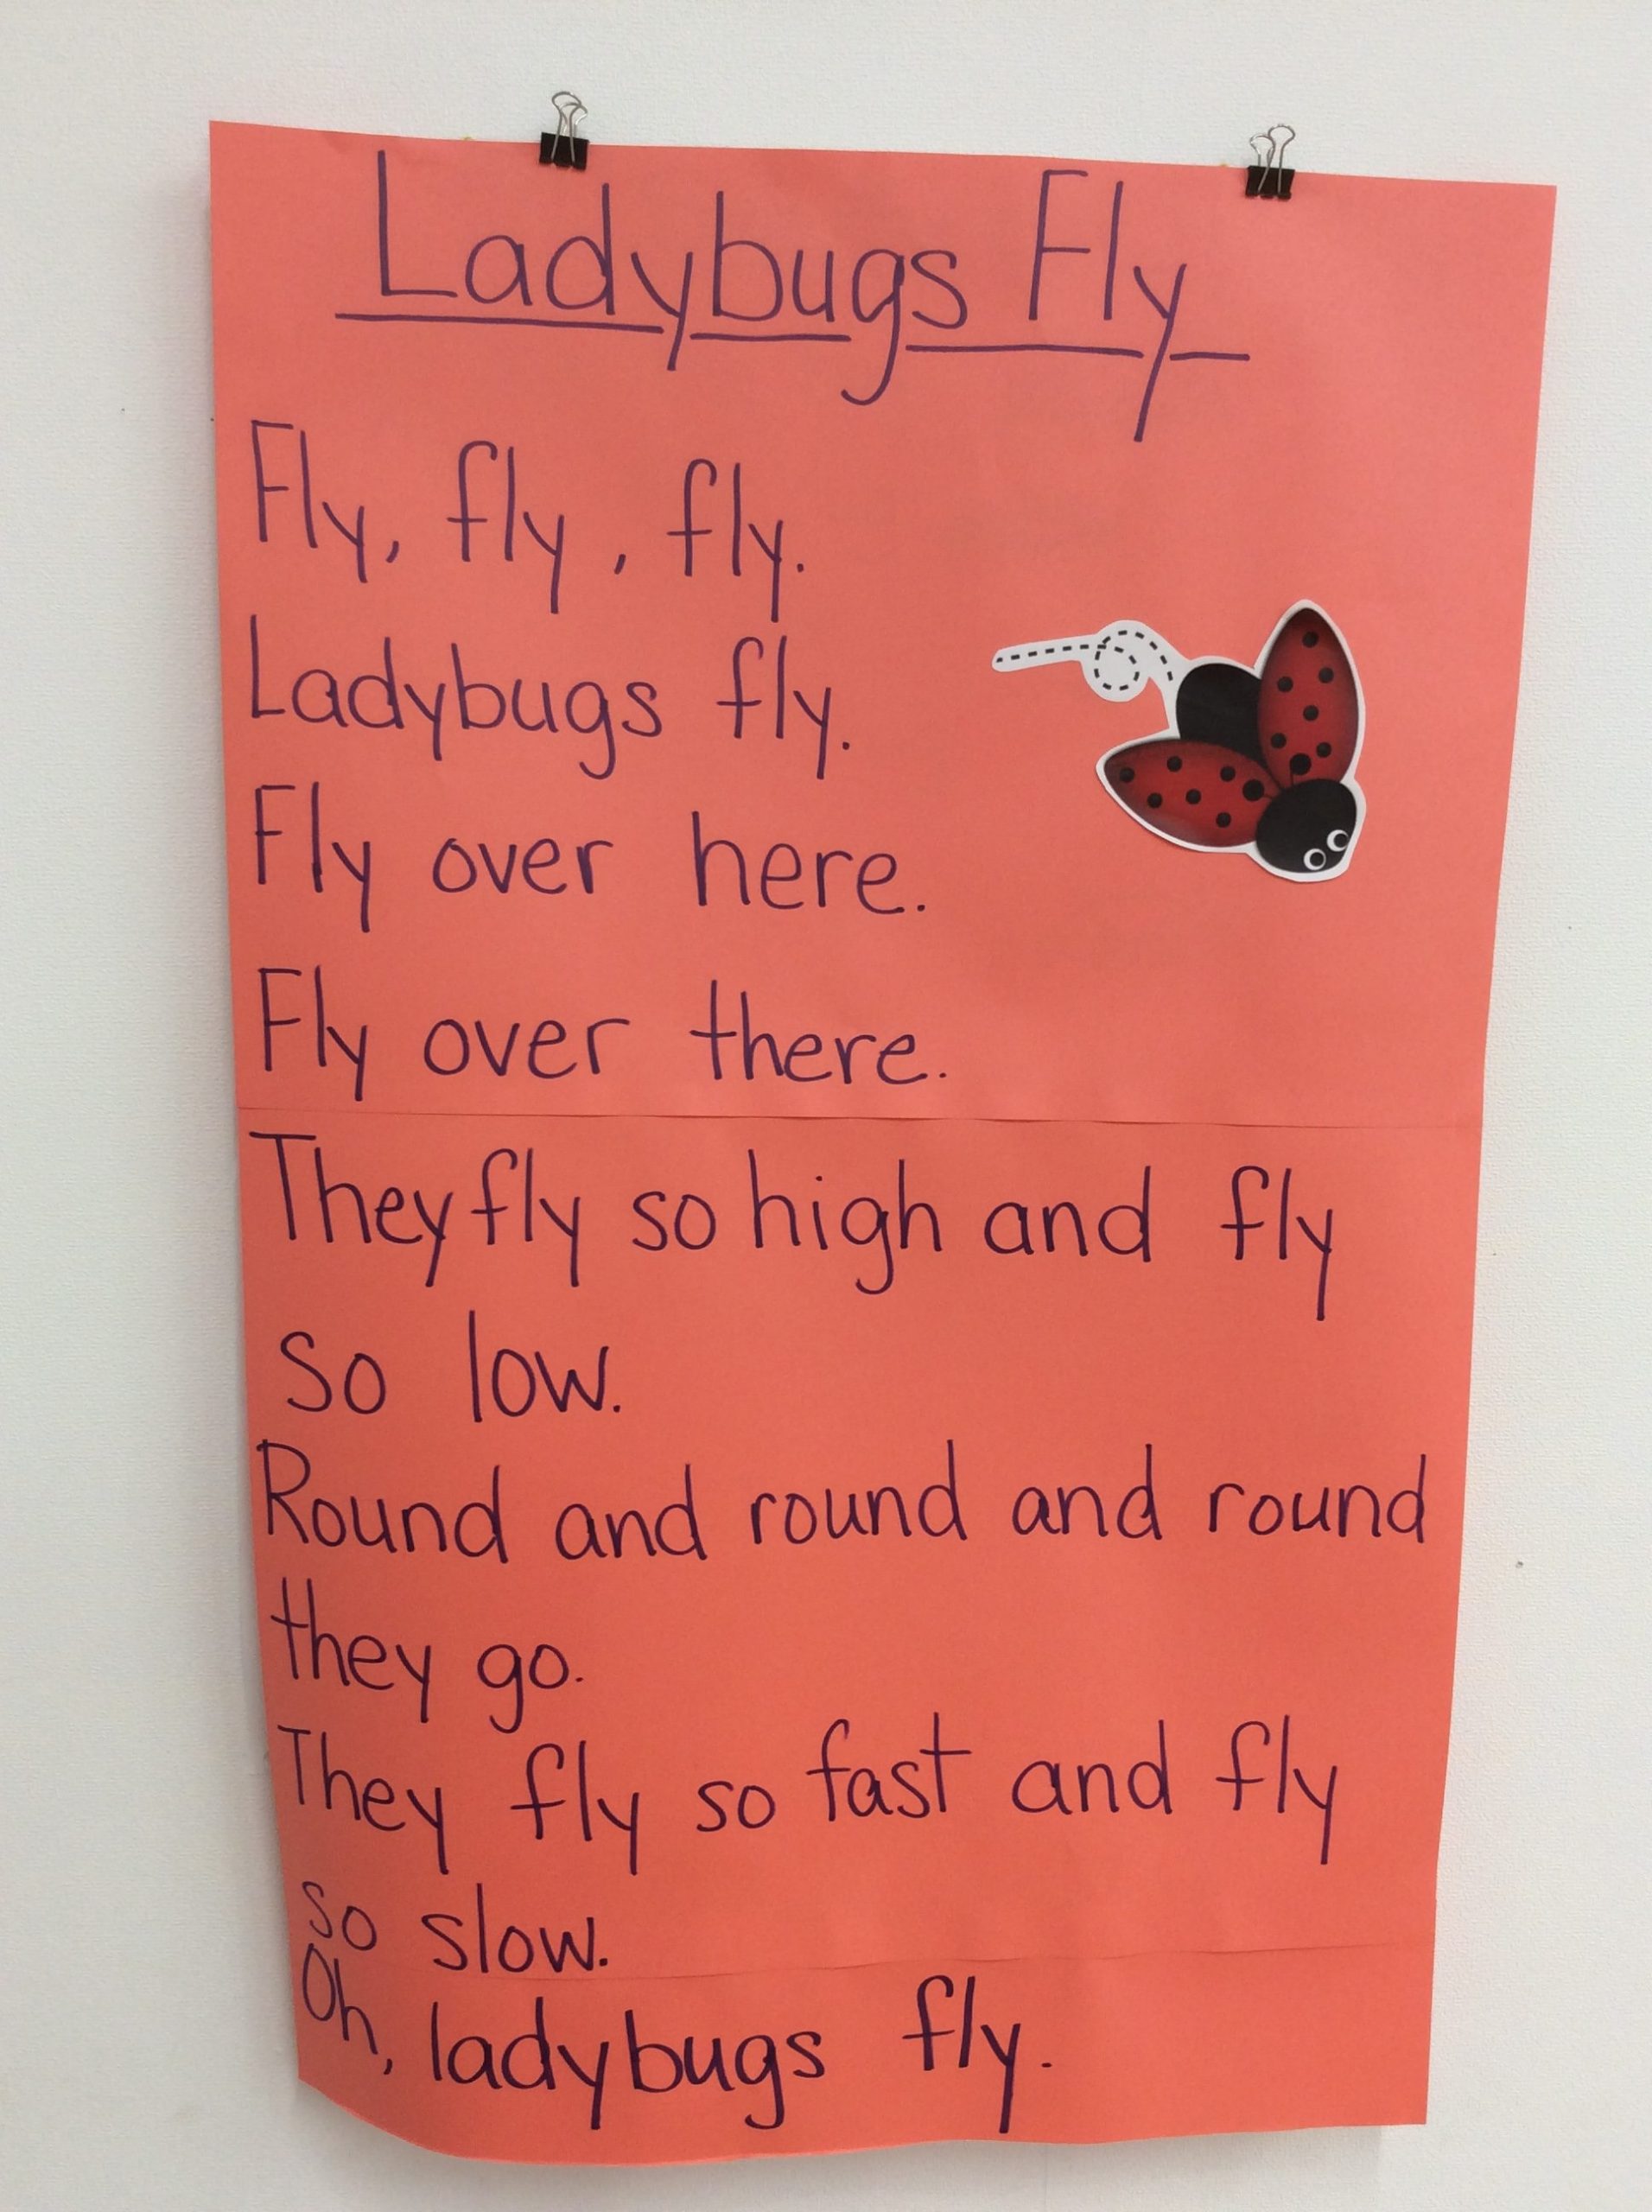 Ladybugs Fly
Fly, fly, fly.
Ladybugs fly.
Fly over here.
Fly over there.
They fly so high and fly
so low.
Round and round and round
they go.
They fly so fast and fly
so slow.
Oh, ladybugs fly.